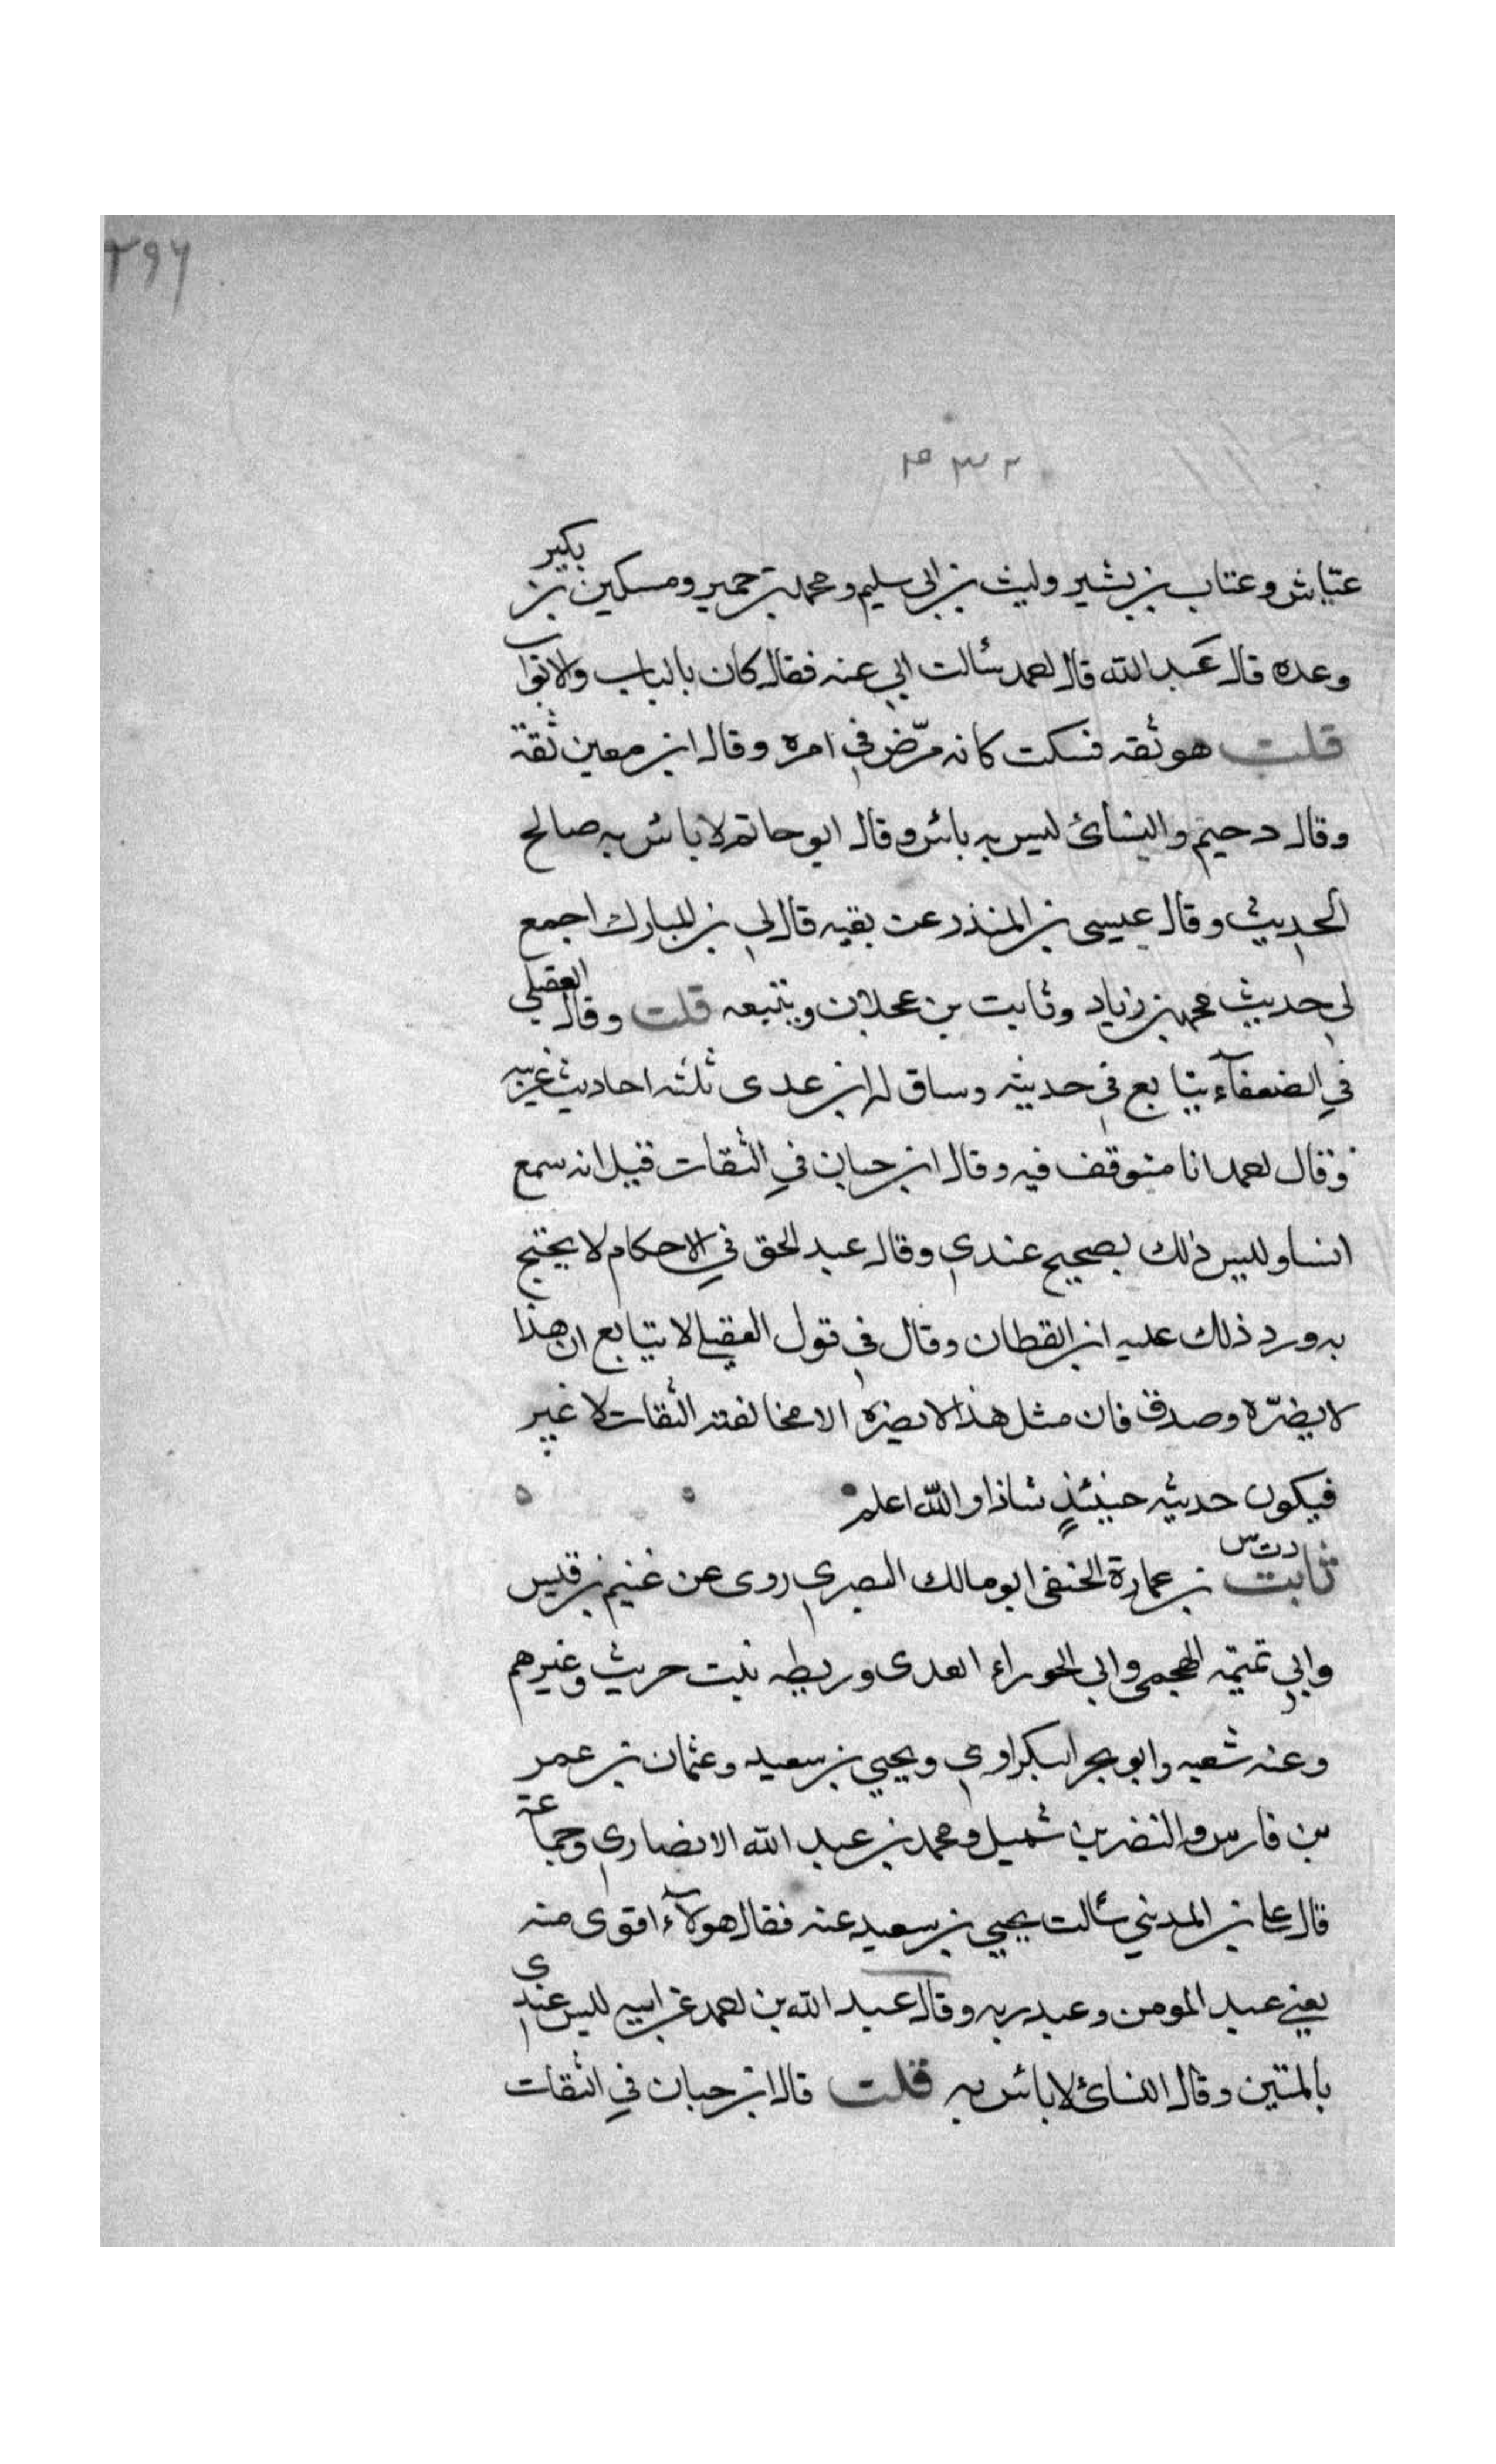 ٢٩٦
٢٣٢
عيّاش وعتاب بن بشير وليث بن ابي سليم ومحمد بن حمير ومسكين بن بكير
وعده قال عبد الله قال احمد سألت ابي عنه فقال كان بالباب والابواب
قلت هو ثقه فسكت كانه مرّض في امره وقال ابن معين ثقة
وقال دحيم والنسائ ليس به بائس وقال ابو حاتم لا بائس به صالح
الحديث وقال عيسى بن المنذر عن بقيه قال لي بن المبارك اجمع
لي حديث محمد بن زياد وثابت بن عجلان وتتبعه قلت وقال العقيلي
في الضعفآء يتابع في حديثه وساق له ابن عدى ثلثه احاديث غريبه
وقال احمد انا متوقف فيه وقال ابن حبان في الثقات قيل انه سمع
انسا وليس ذلك بصحيح عندي وقال عبد الحق في الاحكام لا يحتج
به ورد ذلك عليه ابن القطان وقال في قول العقيلي لا يتابع ان هذا
لا يضرّه وصدق فان مثل هذا لا يضره الا مخالفته الثقات لا غير
فيكون حديثه حينئذٍ شاذا والله اعلم
د ت س
ثابت بن عمارة الحنفى ابو مالك البصري روى عن غنيم بن قيس
وابي تميمه الهجمى وابي الحوراء العدى وريطه بنت حريث وغيرهم
وعنه شعبه وابو بحر البكراوي ويحيي بن سعيد وعثمان بن عمر
بن فارس والنضر بن شميل ومحمد بن عبد الله الانصاري وجماعة
قال على بن المديني سألت يحيي بن سعيد عنه فقال هولآء اقوى منه
يعني عبد المومن وعبد ربه وقال عبد الله بن احمد عن ابيه ليس عندى
بالمتين وقال النسائ لا بائس به قلت قال ابن حبان في الثقات